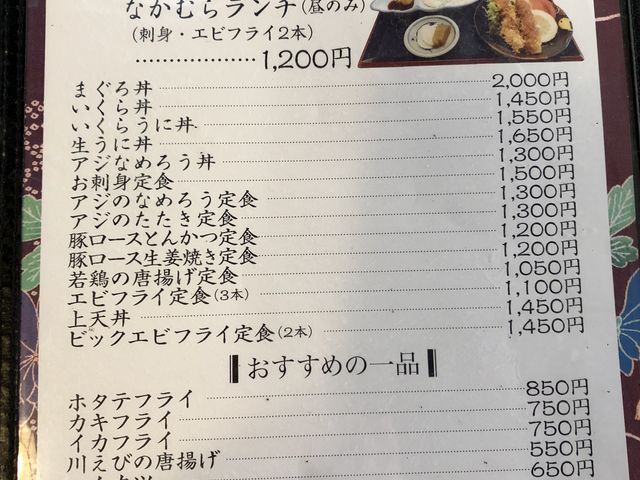 なかむらランチ(昼のみ)
(刺身・エビフライ2本)
………………1,200円
まぐろ丼 2,000円
いくら丼 1,450円
いくらうに丼 1,550円
生うに丼 1,650円
アジなめろう丼 1,300円
お刺身定食 1,500円
アジのなめろう定食 1,300円
アジのたたき定食 1,300円
豚ロースとんかつ定食 1,200円
豚ロース生姜焼き定食 1,200円
若鶏の唐揚げ定食 1,050円
エビフライ定食(3本) 1,100円
上天丼 1,450円
ビックエビフライ定食(2本) 1,450円
おすすめの一品
ホタテフライ 850円
カキフライ 750円
イカフライ 750円
川えびの唐揚げ 550円
650円